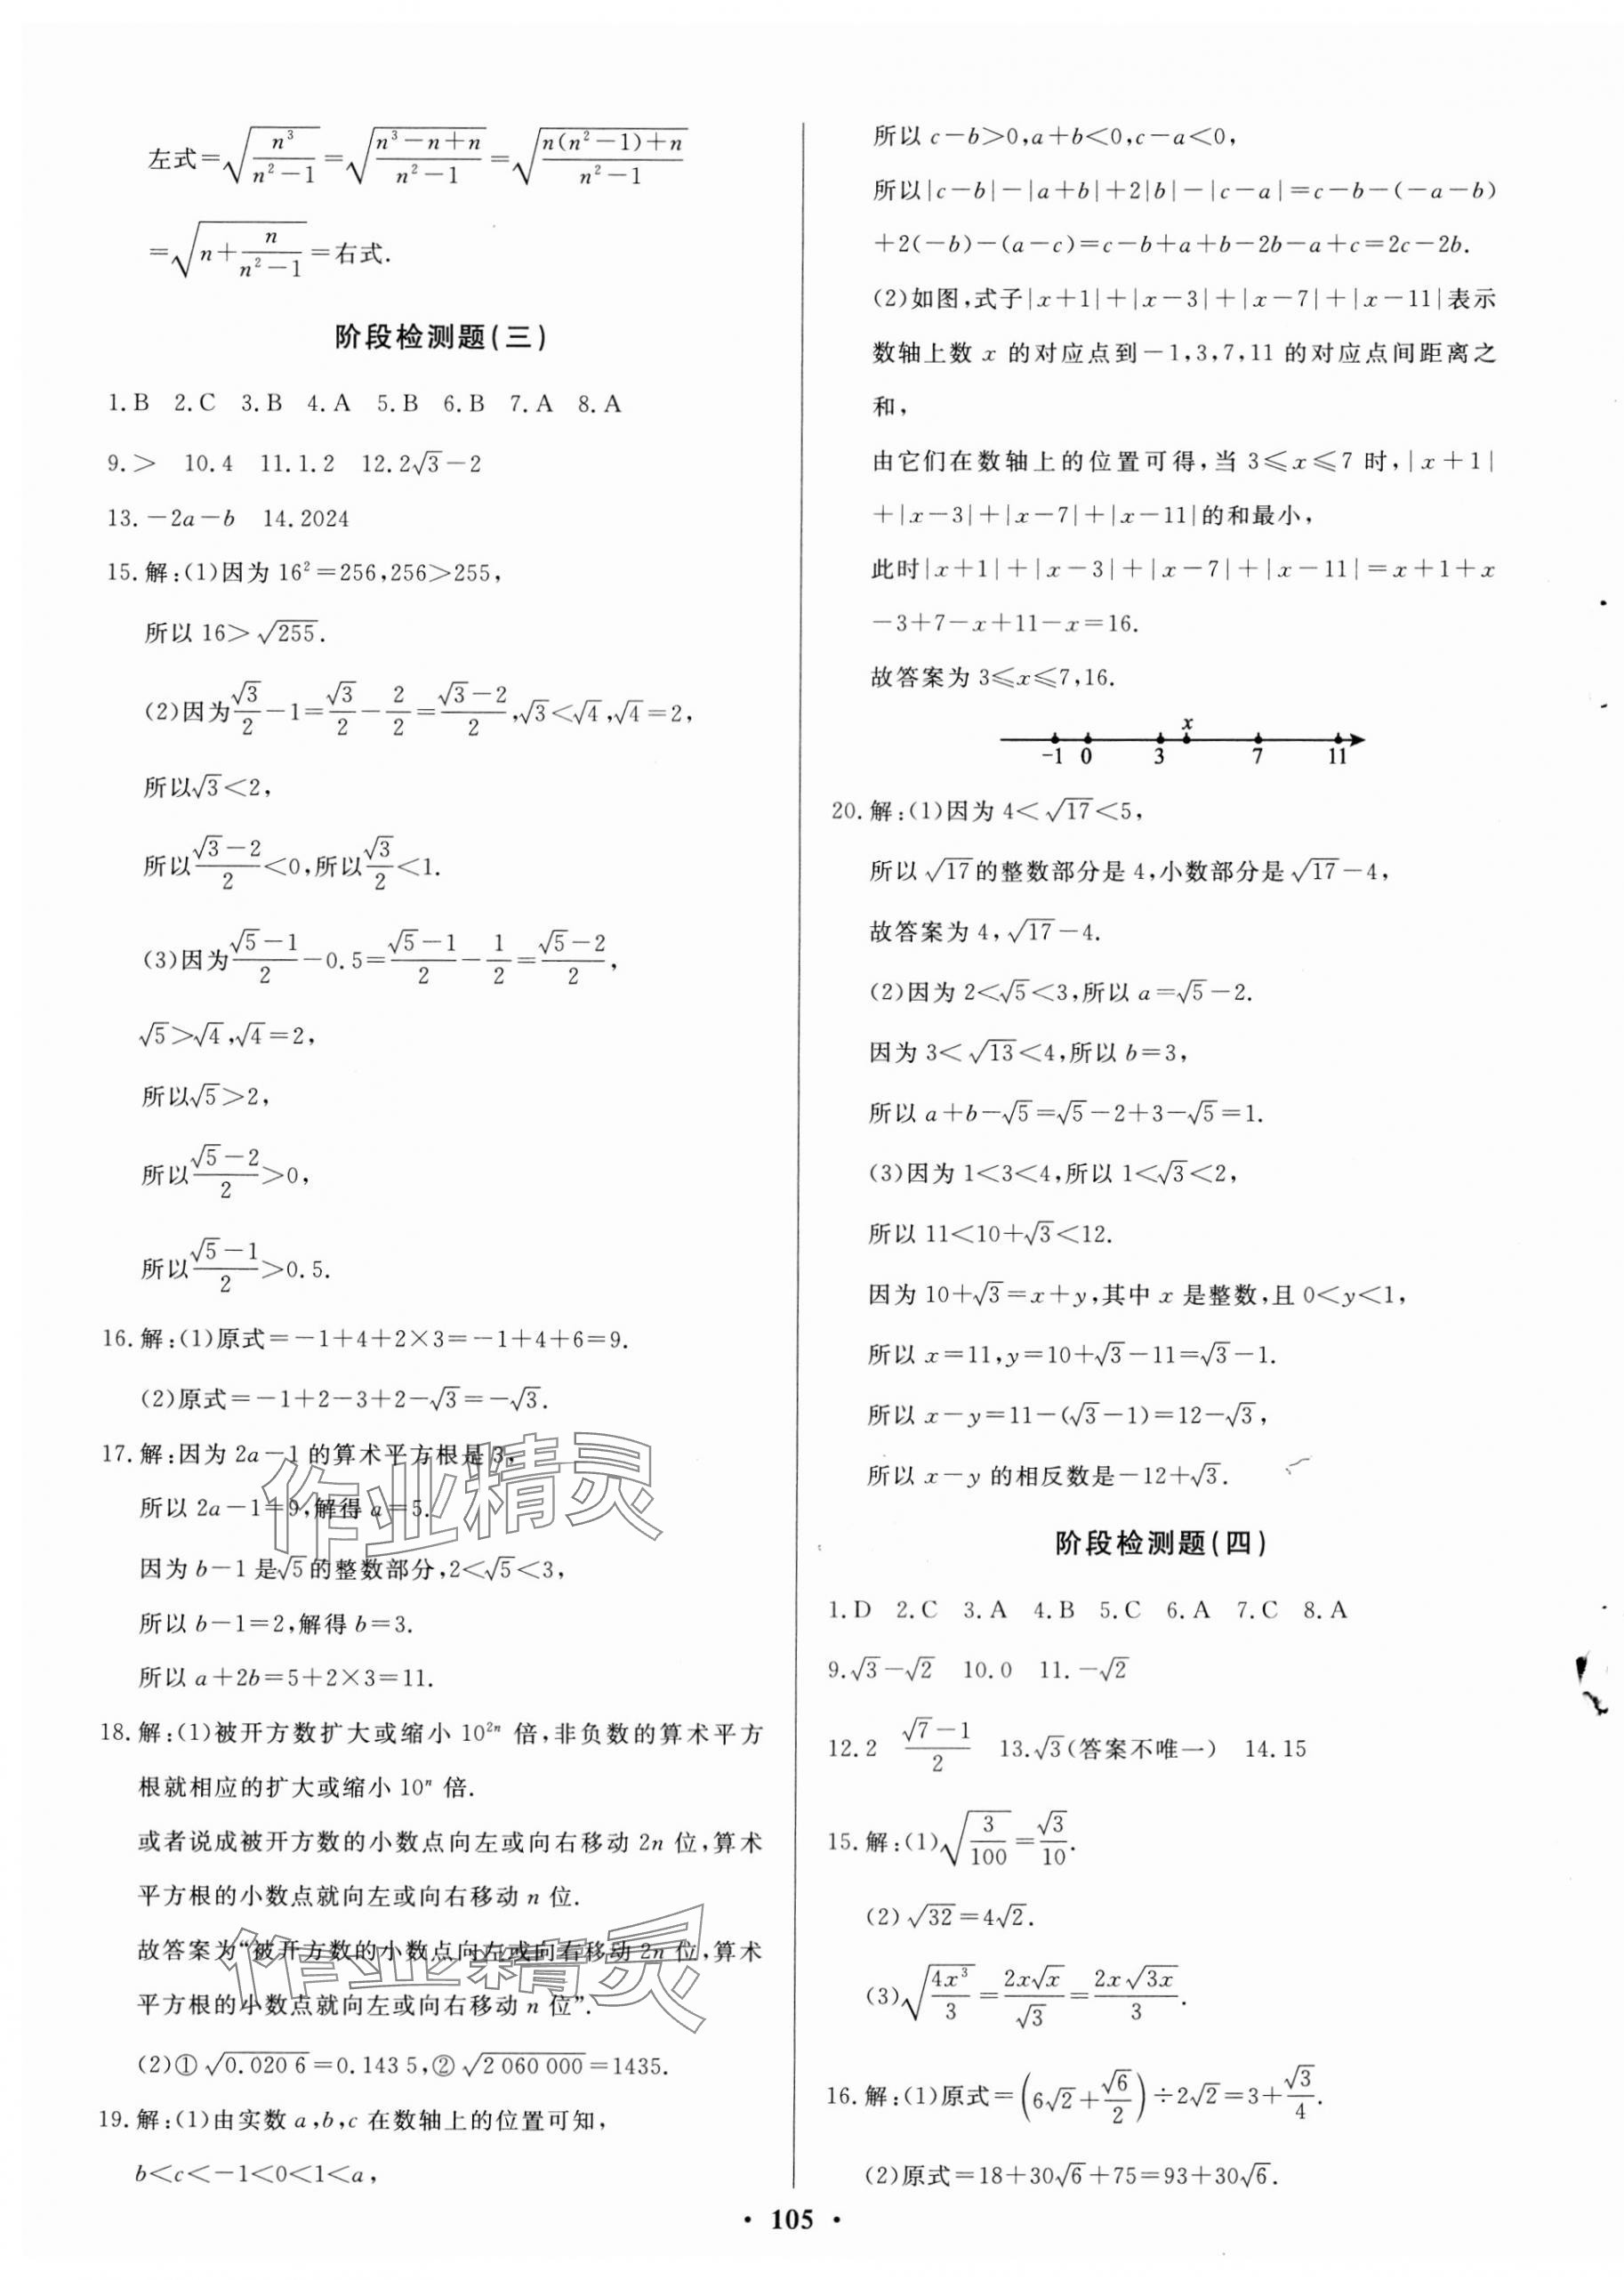 左式=√(n³/(n²-1))=√((n³-n+n)/(n²-1))=√((n(n²-1)+n)/(n²-1))
=√(n+n/(n²-1))=右式.
阶段检测题(三)
1.B 2.C 3.B 4.A 5.B 6.B 7.A 8.A
9.> 10.4 11.1.2 12.2√3-2
13.-2a-b 14.2024
15.解:(1)因为16²=256,256>255,
所以16>√255.
(2)因为√3/2-1=√3/2-2/2=(√3-2)/2,√3<√4,√4=2,
所以√3<2,
所以(√3-2)/2<0,所以√3/2<1.
(3)因为(√5-1)/2-0.5=(√5-1)/2-1/2=(√5-2)/2,
√5>√4,√4=2,
所以√5>2,
所以(√5-2)/2>0,
所以(√5-1)/2>0.5.
16.解:(1)原式=-1+4+2×3=-1+4+6=9.
(2)原式=-1+2-3+2-√3=-√3.
17.解:因为2a-1的算术平方根是3,
所以2a-1=9,解得a=5.
因为b-1是√5的整数部分,2<√5<3,
所以b-1=2,解得b=3.
所以a+2b=5+2×3=11.
18.解:(1)被开方数扩大或缩小10²ⁿ倍,非负数的算术平方
根就相应的扩大或缩小10ⁿ倍.
或者说成被开方数的小数点向左或向右移动2n位,算术
平方根的小数点就向左或向右移动n位.
故答案为“被开方数的小数点向左或向右移动2n位,算术
平方根的小数点就向左或向右移动n位”.
(2)①√0.020 6=0.143 5,②√2 060 000=1435.
19.解:(1)由实数a,b,c在数轴上的位置可知,
b<c<-1<0<1<a,
所以c-b>0,a+b<0,c-a<0,
所以|c-b|-|a+b|+2|b|-|c-a|=c-b-(-a-b)
+2(-b)-(a-c)=c-b+a+b-2b-a+c=2c-2b.
(2)如图,式子|x+1|+|x-3|+|x-7|+|x-11|表示
数轴上数x的对应点到-1,3,7,11的对应点间距离之
和,
由它们在数轴上的位置可得,当3≤x≤7时,|x+1|
+|x-3|+|x-7|+|x-11|的和最小,
此时|x+1|+|x-3|+|x-7|+|x-11|=x+1+x
-3+7-x+11-x=16.
故答案为3≤x≤7,16.
x
-1 0 3 7 11
20.解:(1)因为4<√17<5,
所以√17的整数部分是4,小数部分是√17-4,
故答案为4,√17-4.
(2)因为2<√5<3,所以a=√5-2.
因为3<√13<4,所以b=3,
所以a+b-√5=√5-2+3-√5=1.
(3)因为1<3<4,所以1<√3<2,
所以11<10+√3<12.
因为10+√3=x+y,其中x是整数,且0<y<1,
所以x=11,y=10+√3-11=√3-1.
所以x-y=11-(√3-1)=12-√3,
所以x-y的相反数是-12+√3.
阶段检测题(四)
1.D 2.C 3.A 4.B 5.C 6.A 7.C 8.A
9.√3-√2 10.0 11.-√2
12.2 (√7-1)/2 13.√3(答案不唯一) 14.15
15.解:(1)√(3/100)=√3/10.
(2)√32=4√2.
(3)√(4x³/3)=2x√x/√3=2x√(3x)/3.
16.解:(1)原式=(6√2+√6/2)÷2√2=3+√3/4.
(2)原式=18+30√6+75=93+30√6.
• 105 •
作业精灵
作业精灵